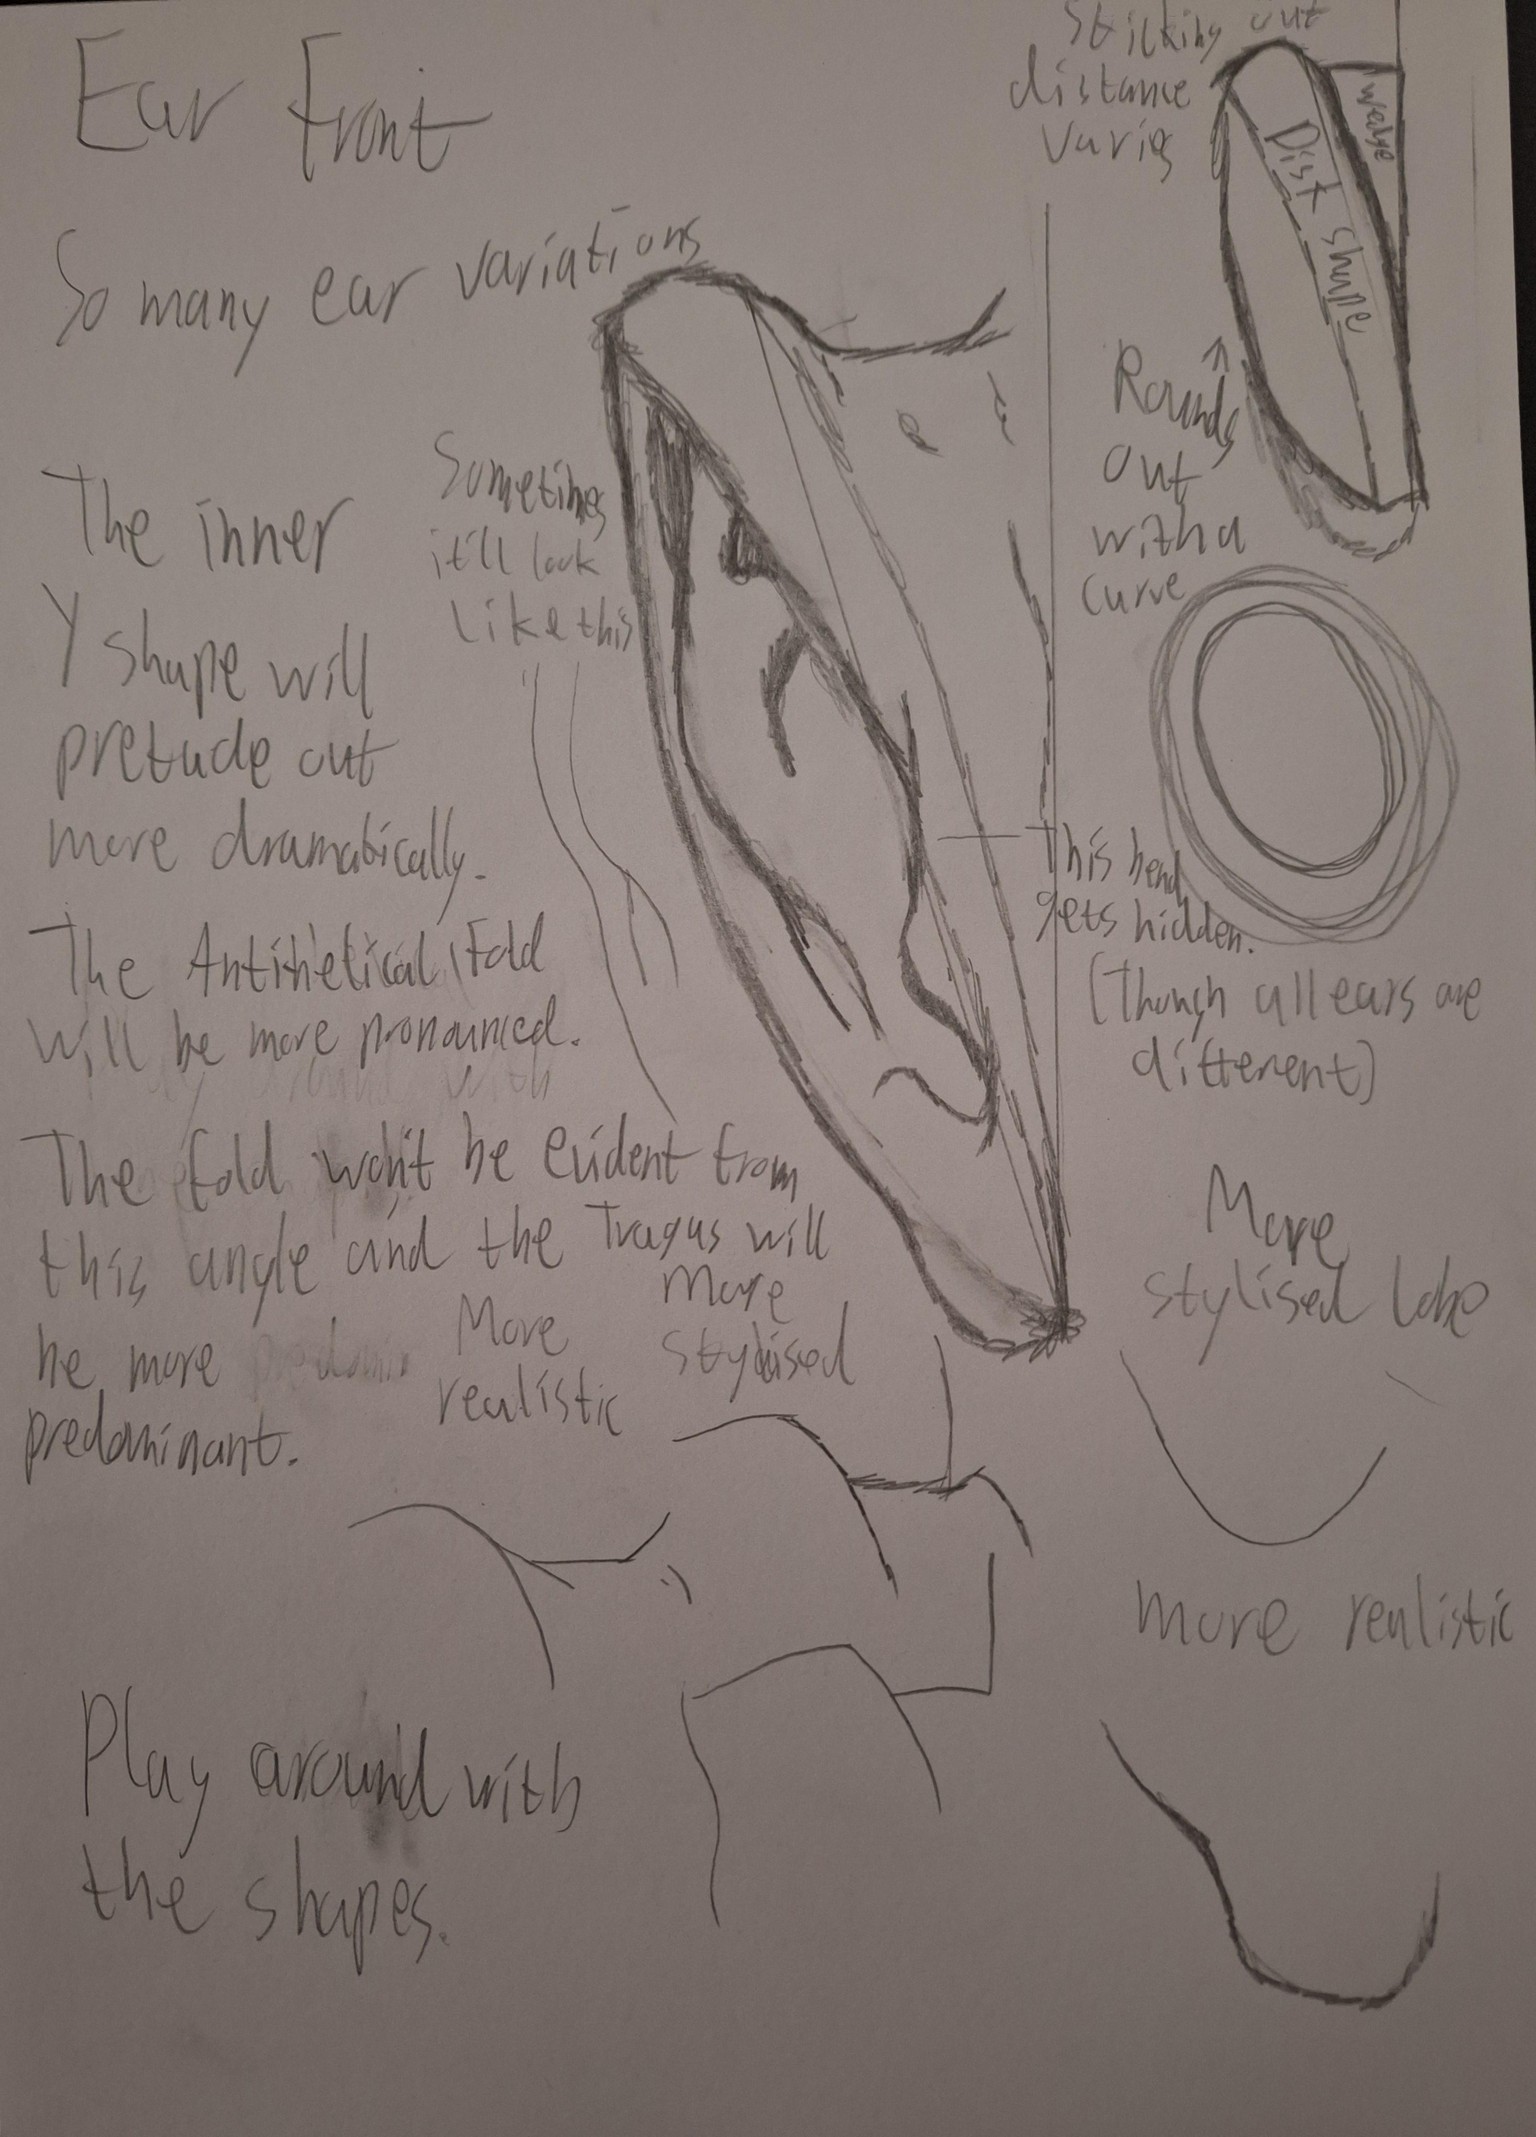 Ear Front
So many ear variations
Sticking out
distance
varies
wedge
Dist shape
Rounds
out
with a
curve
The inner
Y shape will
pretude out
more dramatically.
Sometimes
it'll look
like this
This bend
gets hidden.
(Though all ears are
different)
The Antithetical Fold
will be more pronounced.
The fold won't be evident from
this angle and the Tragus will
be more
predominant.
More
realistic
More
stylised
More
stylised lobe
more realistic
Play around with
the shapes.